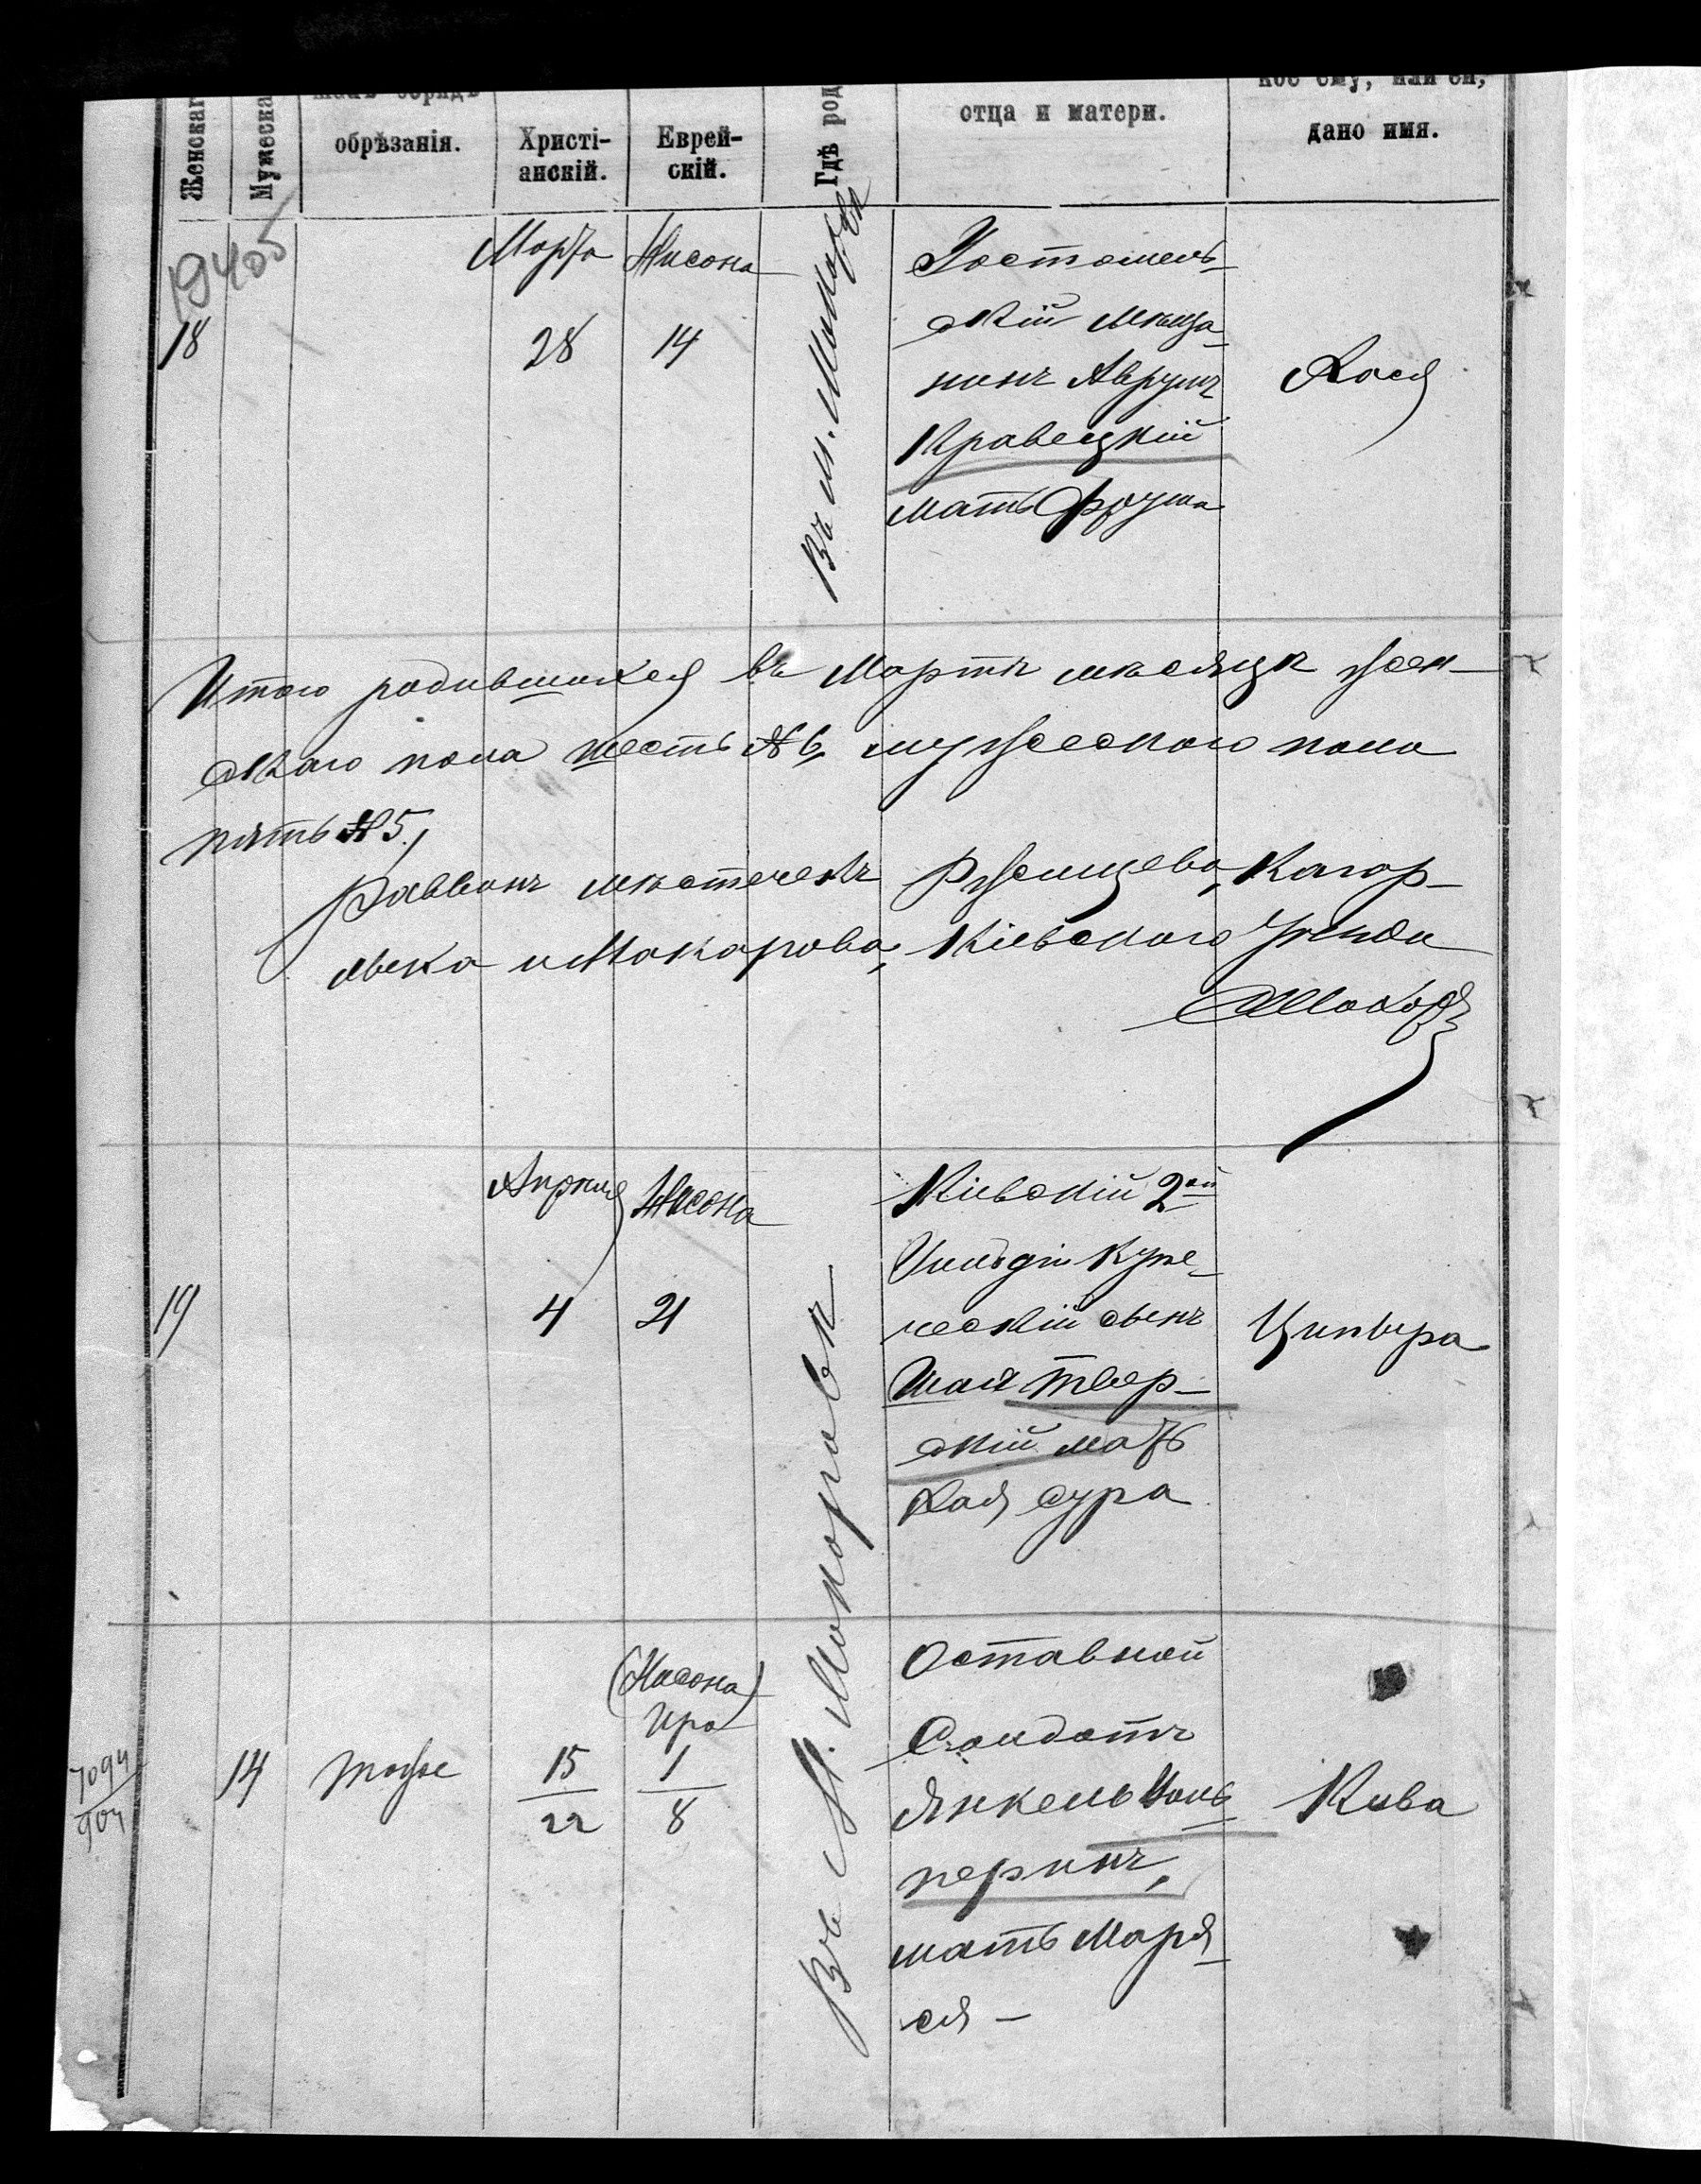 Женскаг
Мужеска
обрѣзанія.
Христі-
анскій.
Еврей-
скій.
Гдѣ род
отца и матери.
дано имя.
19405
18
Марта
28
Нисона
14
Въ м. Макаровѣ
Гостомель-
скій мѣща-
нинъ Аврумъ
Кравецкій
мать Фрума
Хася
Итого родившихся въ Мартѣ мѣсяцѣ жен-
скаго пола шесть № 6, мужескаго пола
пять № 5.,
Раввинъ мѣстечекъ Ржищева, Кагар-
лыка и Макарова, Кіевскаго Уѣзда
19
Апрѣля
4
Нисона
21
Въ М. Макаровѣ
Кіевскій 2ой
Гильдіи Купе-
ческій сынъ
Шая Твер-
скій мать
Хая Сура
Ципера
7094
904
14
тоже
15
22
(Нисона)
Ира
1
8
Оставной
Солдатъ
Янкель Галь-
перинъ,
мать Маря-
ся –
Кива